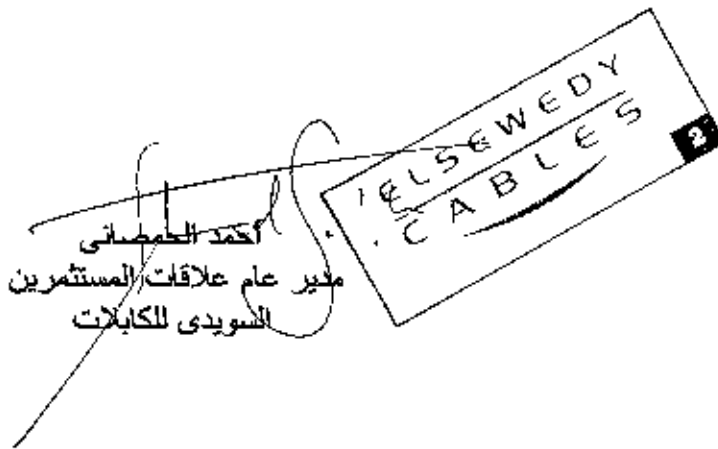 ELSEWEDY
CABLES
2
أحمد الحمصانى
مدير عام علاقات المستثمرين
السويدى للكابلات